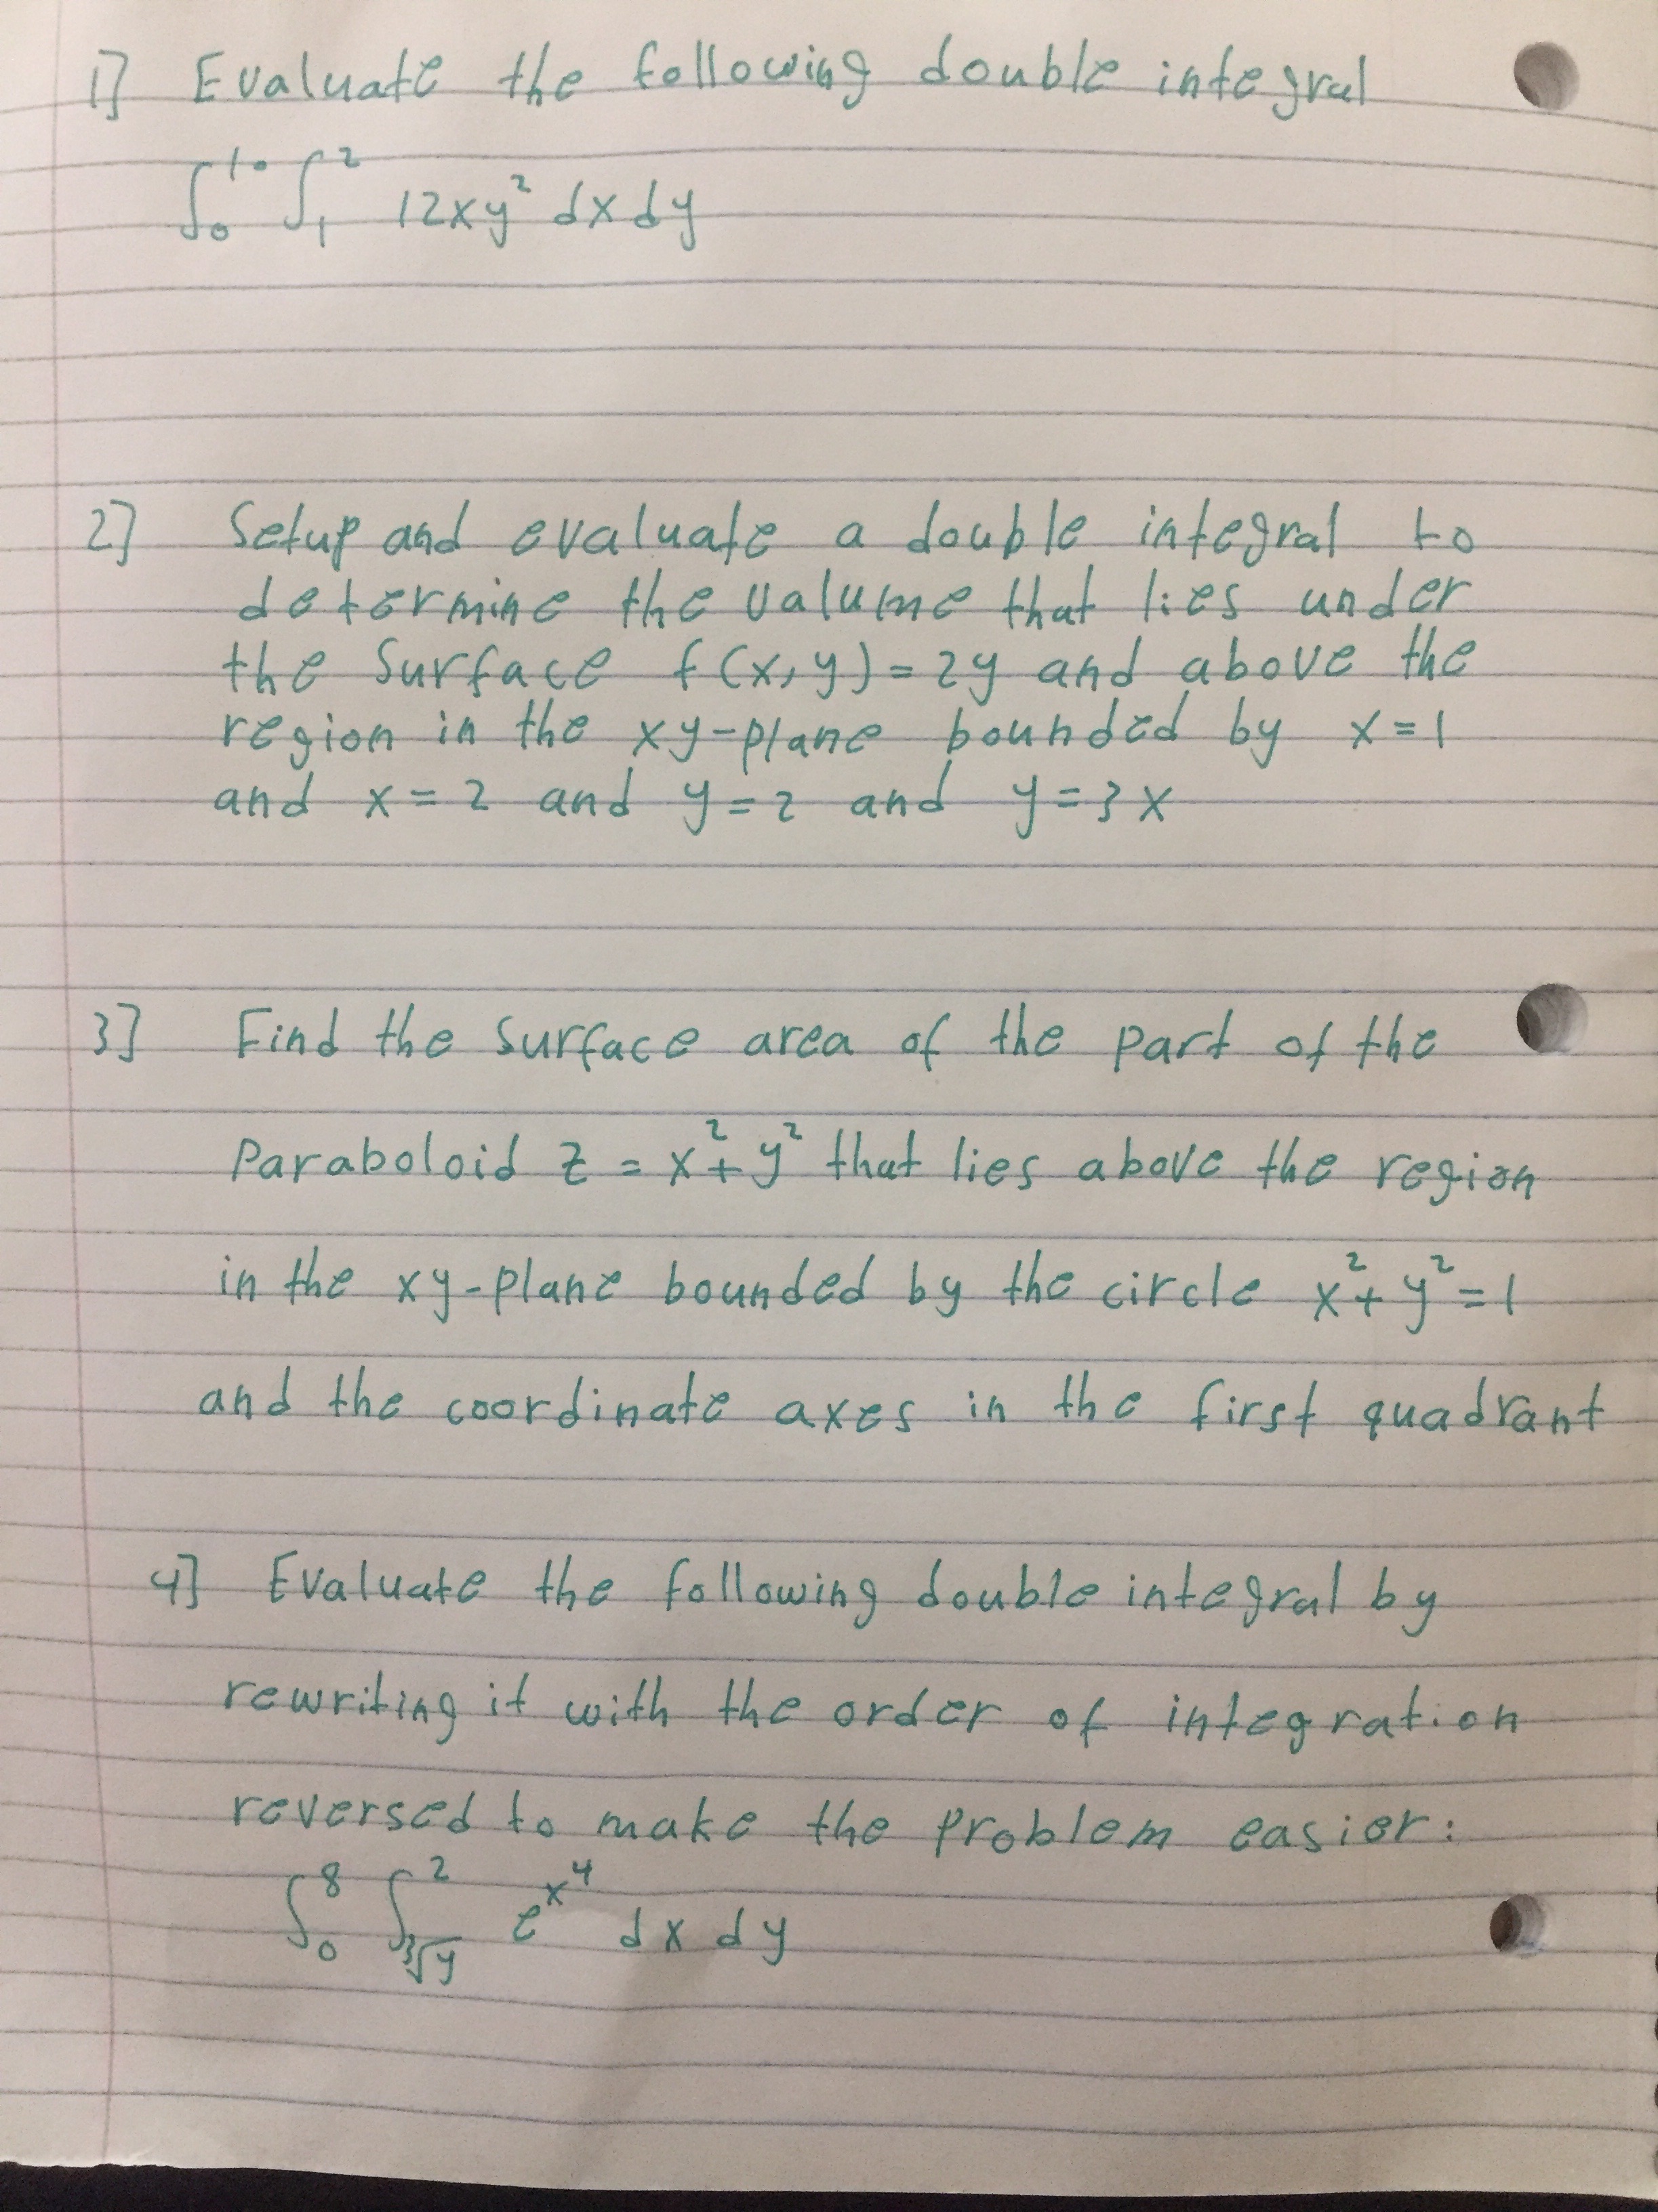 1] Evaluate the following double integral
∫₀¹⁰ ∫₁² 12xy² dx dy
2] Setup and evaluate a double integral to
determine the valume that lies under
the Surface f(x,y)=2y and above the
region in the xy-plane bounded by x=1
and x=2 and y=2 and y=3x
3] Find the surface area of the part of the
Paraboloid z = x²+y² that lies above the region
in the xy-plane bounded by the circle x²+y²=1
and the coordinate axes in the first quadrant
4] Evaluate the following double integral by
rewriting it with the order of integration
reversed to make the problem easier:
∫₀⁸ ∫_{∛y}² e^{x⁴} dx dy